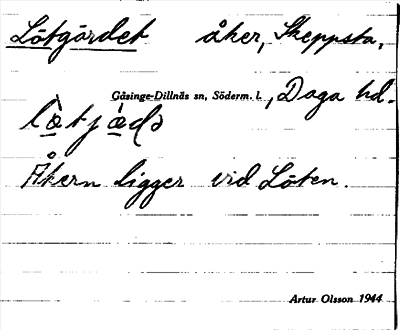 Lötgärdet åker, Skeppsta,
Gåsinge-Dillnäs sn, Söderm. l., Daga hd.
Åkern ligger vid Löten.
Artur Olsson 1944